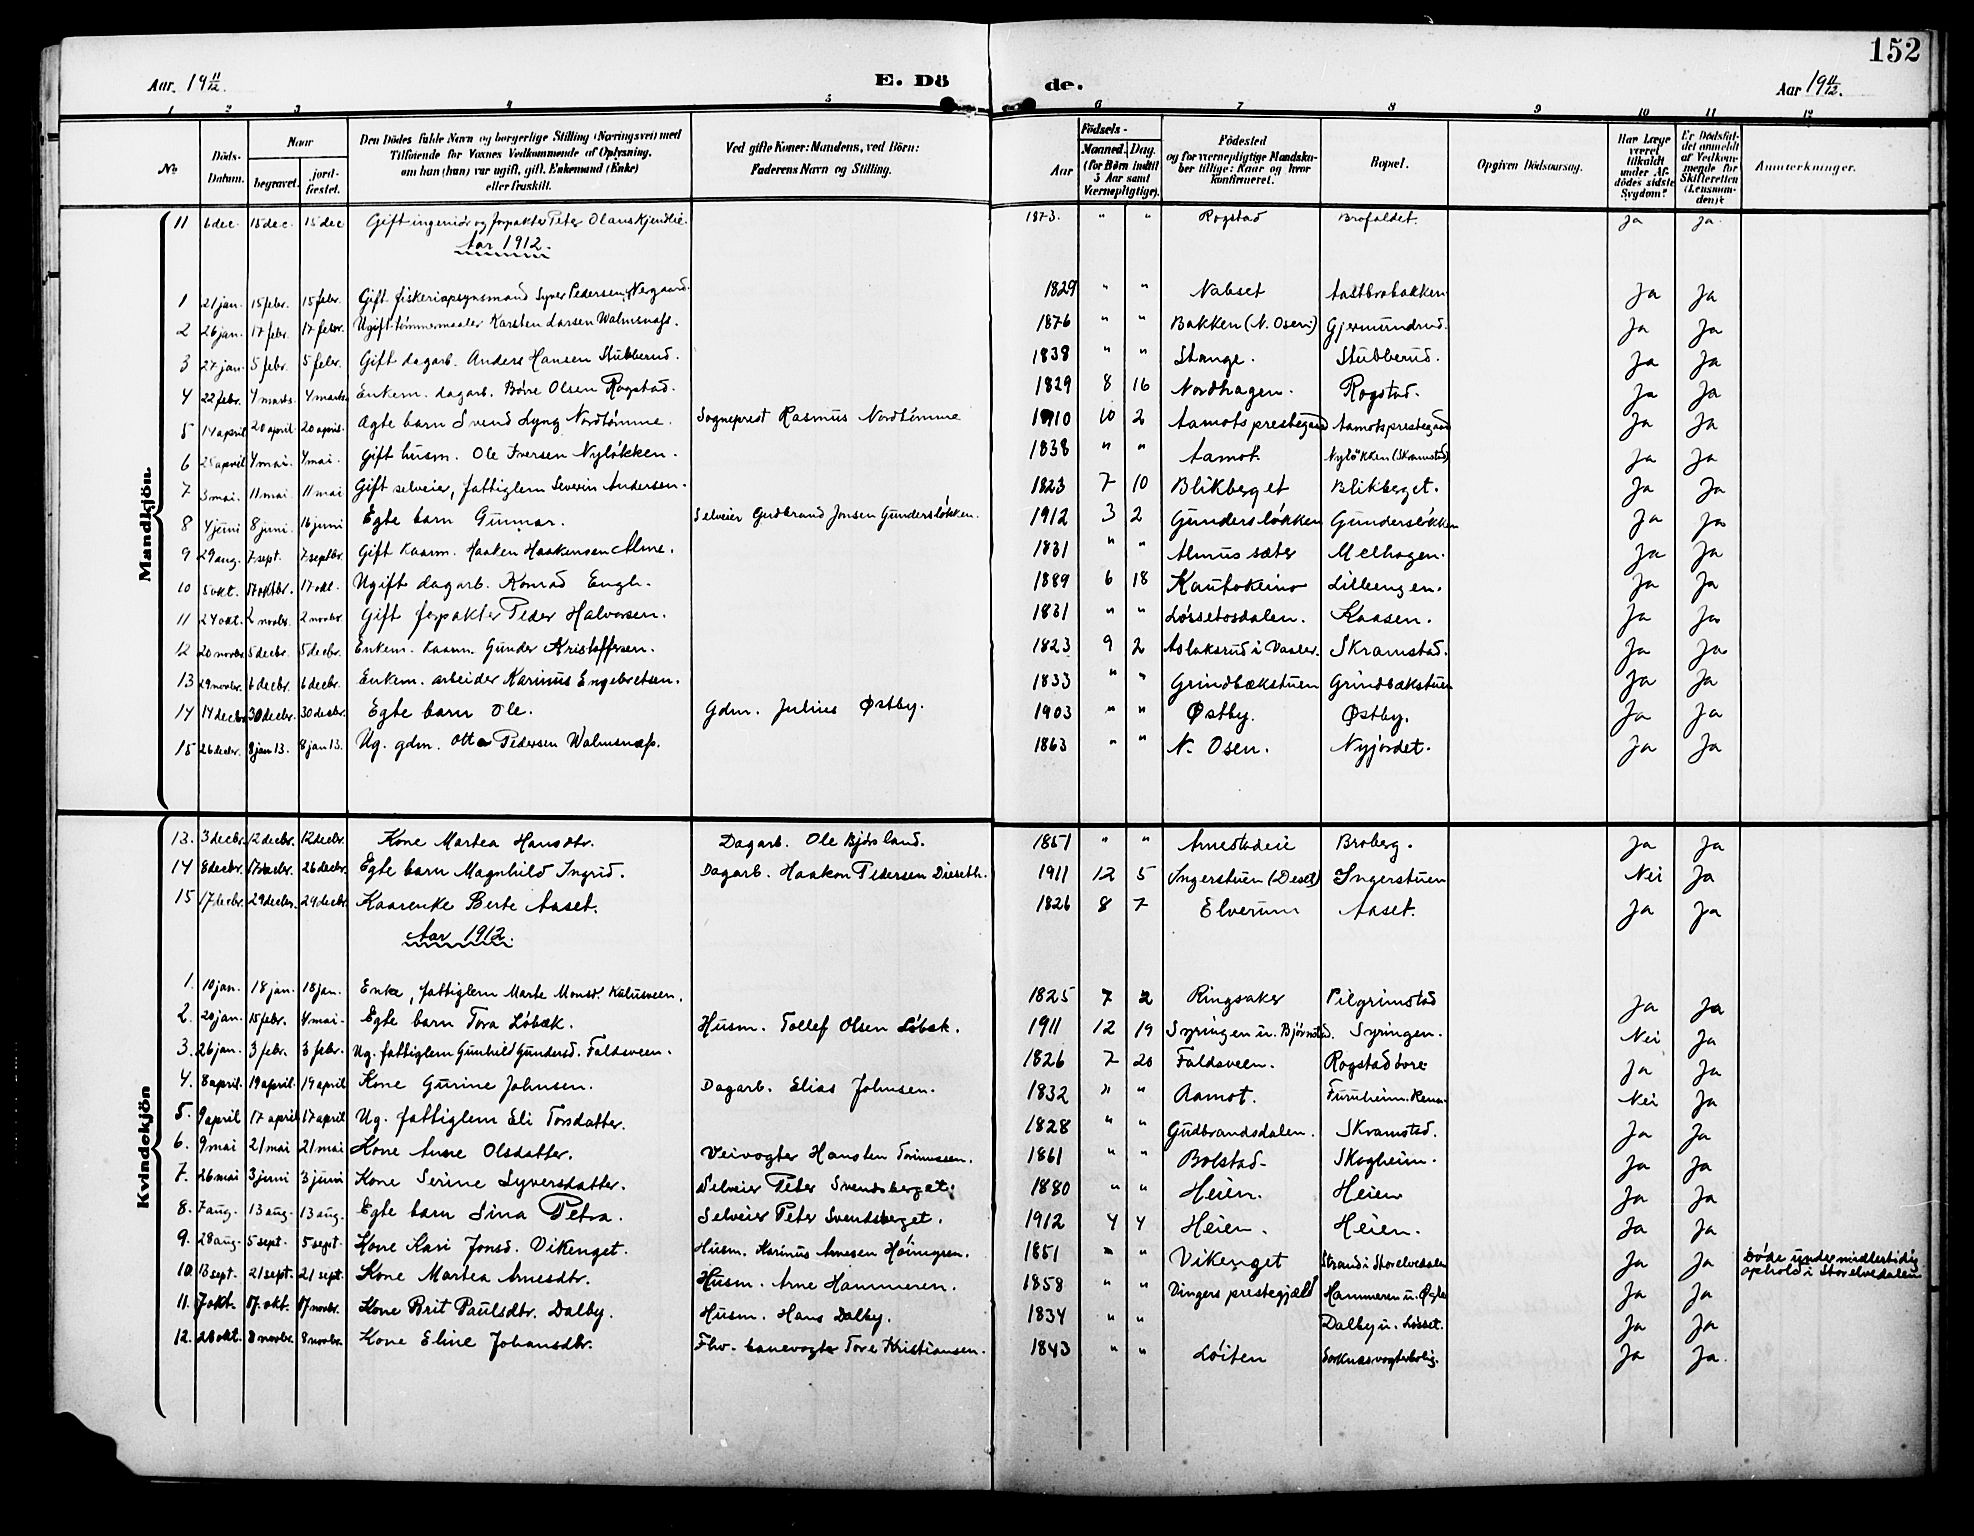 152
Aar. 19 11/12. E. Dö de. Aar 19 11/12.
1 2 3 4 5 6 7 8 9 10 11 12
No. Döds-Datum. Naar begravet. jord-fæstet. Den Dödes fulde Navn og borgerlige Stilling (Næringsvei) med Tilföiende for Voxnes Vedkommende af Oplysning, om han (hun) var ugift, gift, Enkemand (Enke) eller fraskilt. Ved gifte Koner: Mandens, ved Börn: Faderens Navn og Stilling. Födsels- Aar Maaned. Dag. (for Börn indtil 5 Aar samt Værnepligtige). Födested og for værnepligtige Mandskaber tillige: Naar og hvor konfirmeret. Bopæl. Opgiven Dödsaarsag. Har Læge været tilkaldt under Afdödes sidste Sygdom? Er Dödsfaldet anmeldt af Vedkommende for Skifteretten (Lensmanden)? Anmærkninger.
Mandkjön.
11 6 dec. 15 dec. 15 dec Gift ingeniör og forpakter Peter Olaus Kjendlie. 1873. " " Rogstad Brofaldet. Ja Ja.
Aar 1912.
1 21 jan. 15 febr. 15 febr. Gift fiskeriopsynsmand Syver Pedersen Nergaard. 1829 " " Nabset Aastbrobakken Ja Ja
2 26 jan. 17 febr. 17 febr. Ugift tømmermaaler Karsten Larsen Walmsnæs. 1876 " " Bakken (N. Osen) Gjermundrud. Ja Ja
3 27 jan. 5 febr. 5 febr. Gift dagarb. Anders Hansen Stubberud. 1838 " " Stange. Stubberud. Ja Ja
4 22 febr. 4 marts. 4 marts. Enkem. dagarb. Böre Olsen Rogstad. 1829 8 16 Nordhagen. Rogstad. Ja Ja
5 14 april 20 april. 20 april. Ægte barn Svend Lyng Nordtømme. Sogneprest Rasmus Nordtömme 1910 10 2 Aamots prestegaard Aamots prestegaard Ja Ja
6 25 april 4 mai. 4 mai. Gift husm. Ole Iversen Nyløkken. 1838 " " Aamot. Nylökken (Skramstad) Ja Ja
7 3 mai. 11 mai. 11 mai Gift selveier, fattiglem Severin Andersen. 1823 7 10 Blikberget Blikberget. Ja Ja
8 4 juni 8 juni. 16 juni Egte barn Gunnar. Selveier Gudbrand Jonsen Gundersløkken. 1912 3 2 Gundersløkken Gundersløkken Ja Ja
9 29 aug. 7 sept. 7 septbr. Gift kaarm. Haaken Haakensen Alme. 1831 " " Almussæter Melhagen. Ja Ja
10 5 okt. 17 oktbr. 17 okt. Ugift dagarb. Konrad Engh. 1889 6 18 Kautokeino Lilleengen. Ja Ja
11 24 okt. 2 novbr. 2 novbr Gift forpakter Peder Halvorsen. 1831 " " Løssetosdalen. Kaasen. Ja Ja
12 20 novbr 5 decbr. 5 decbr. Enkem. kaarm. Gunder Kristoffersen. 1823 9 2 Aslaksrud i Vaaler. Skramstad. Ja Ja
13 29 novbr. 6 decbr. 6 decbr. Enkem. arbeider Karinus Engebretsen. 1833 " " Grindbækstuen Grindbækstuen Ja Ja
14 14 decbr 30 decbr. 30 decbr. Egte barn Ole. Gdm. Julius Østby. 1903 " " Østby. Østby. Ja Ja
15 26 decbr. 8 jan 13. 8 jan 13. Ug. gdm. Otto Pedersen Walmsnæs. 1863 " " N. Osen. Nyjordet. Ja Ja
Kvindekjön
13. 3 decbr. 12 decbr. 12 decbr. Kone Martea Hansdtr. Dagarb. Ole Bjørsland. 1851 " " Arnestadeie Broberg. Ja Ja
14 8 decbr. 17 decbr. 26 decbr. Egte barn Magnhild Ingrid. Dagarb. Haakon Pedersen Dieseth. 1911 12 5 Ingerstuen (Deset) Ingerstuen Nei Ja
15 17 decbr. 29 decbr. 29 decbr. Kaarenke Berte Aaset. 1826 8 7 Elverum Aaset. Ja Ja
Aar 1912.
1. 10 jan. 18 jan. 18 jan. Enke, fattiglem Marte Monsd. Kalusveen. 1825 7 2 Ringsaker Pilgrimstad Ja Ja
2. 20 jan. 15 febr. 4 mai. Egte barn Tora Löbæk. Husm. Tollef Olsen Löbæk. 1911 12 19 Syringen u. Bjørnstad. Syringen. Nei Ja
3. 26 jan. 3 febr. 3 febr. Ug. fattiglem Gunhild Gundersd. Faldsveen. 1826 7 20 Faldsveen. Rogstadtore Ja Ja
4. 8 april. 19 april. 19 april Kone Gurine Johnsen. Dagarb. Elias Johnsen. 1832 " " Aamot. Furuheim. Rena. Nei Ja
5. 9 april 17 april 17 april Ug. fattiglem Eli Torsdatter. 1828 " " Gudbrandsdalen. Skramstad. Ja Ja
6. 9 mai 21 mai 21 mai Kone Anne Olsdatter. Veivogter Hansten Torinussen. 1861 " " Bolstad. Skogheim. Ja Ja
7. 26 mai 3 juni 3 juni Kone Serine Syversdatter. Selveier Peter Svendsberget. 1880 " " Heien. Heien Ja Ja
8. 7 aug. 13 aug. 13 aug. Egte barn Sina Petra. Selveier Peter Svendsberget. 1912 4 4 Heien. Heien. Ja Ja
9. 28 aug. 5 sept. 5 sept. Kone Kari Jonsd. Vikenget. Husm. Karinus Arnesen Höimyren. 1851 " " Vikenget Strand i Storelvedalen Ja Ja Døde under midlertidig ophold i Storelvedalen
10. 13 sept. 21 sept. 21 sept. Kone Martea Arnesdtr. Husm. Arne Hammeren. 1858 " " Vingers prestegjæld Hammeren u. Øgle Ja Ja
11. 7 okt. 17. okt. 17 novbr. Kone Brit Paulsdtr. Dalby. Husm. Hans Dalby. 1834 " " Dalby u. Løsset. Ja Ja
12. 28 okt. 8 novbr. 8 novbr. Kone Eline Johansdtr. Fhv. banevogter Tore Kristiansen. 1843 " " Löiten Sorknæsvogterbolig. Ja Ja.